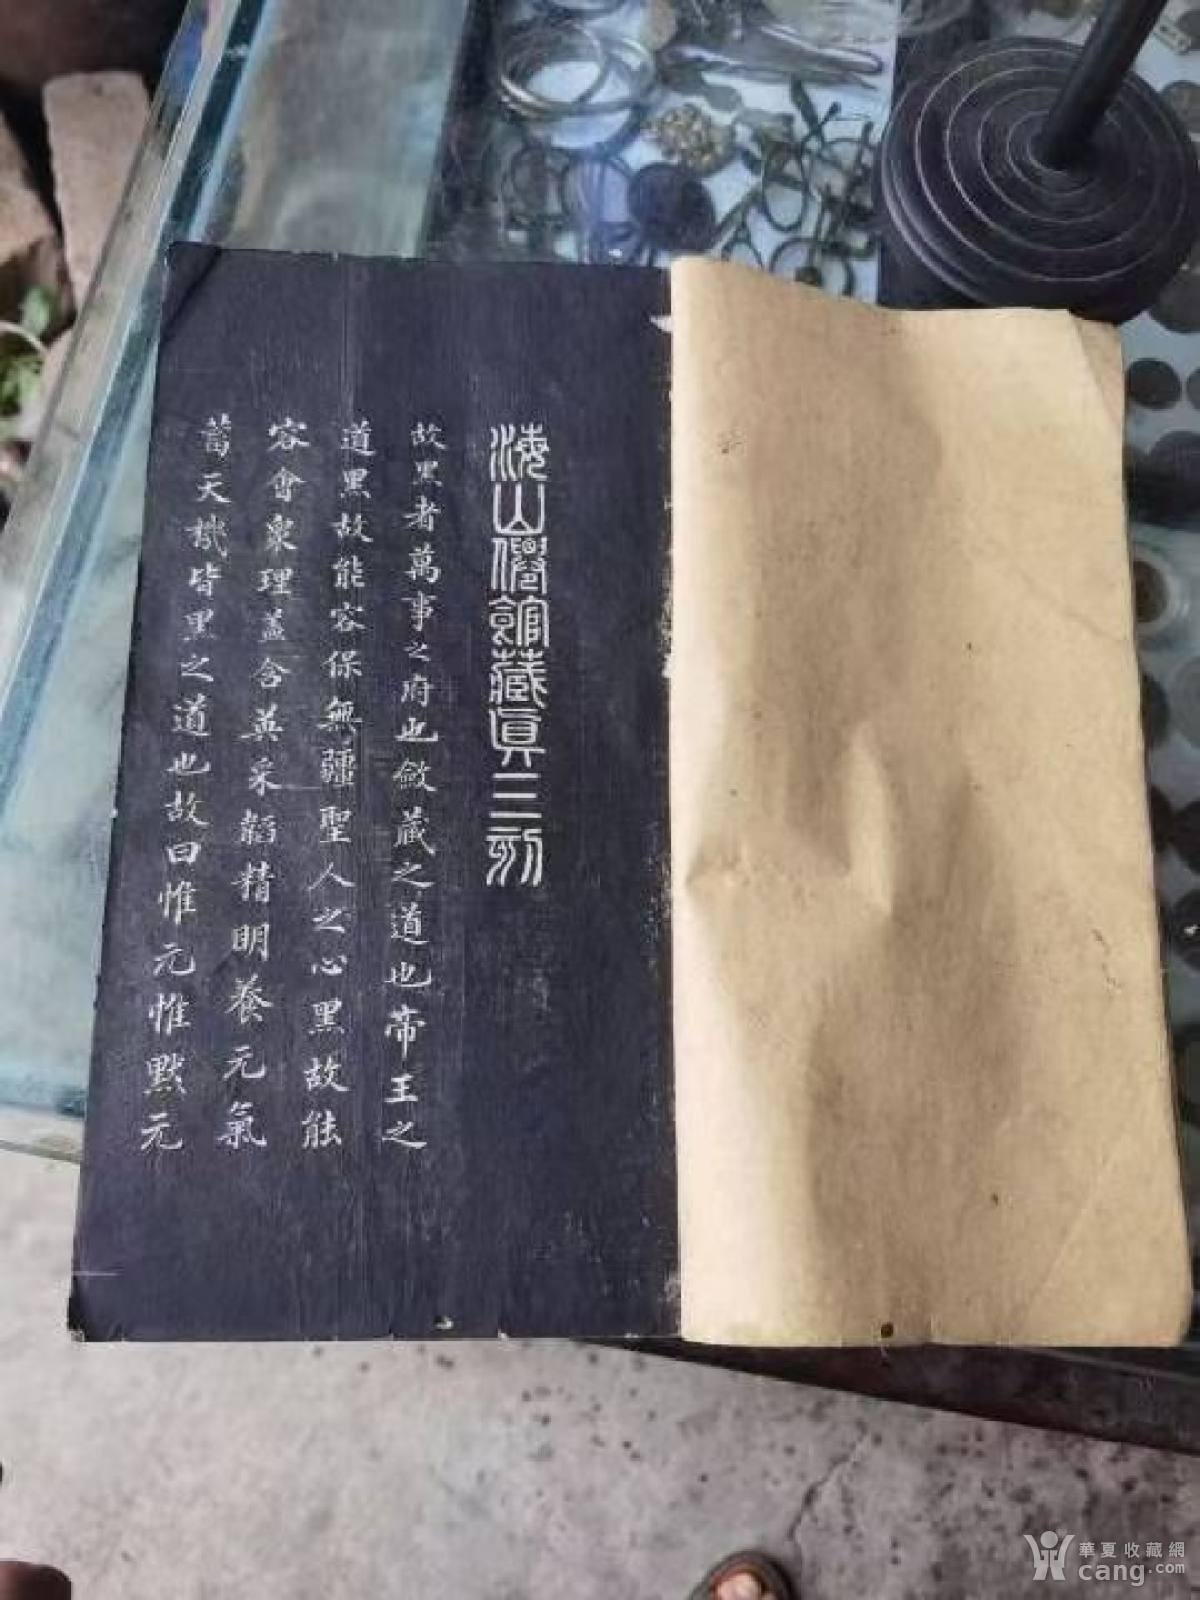 海山僊館藏真三刻
故黑者萬事之府也斂藏之道也帝王之
道黑故能容保無疆聖人之心黑故能
容會衆理蓋含英采韜精明養元氣
蓄天機皆黑之道也故曰惟元惟默元
華夏收藏網
cang.com